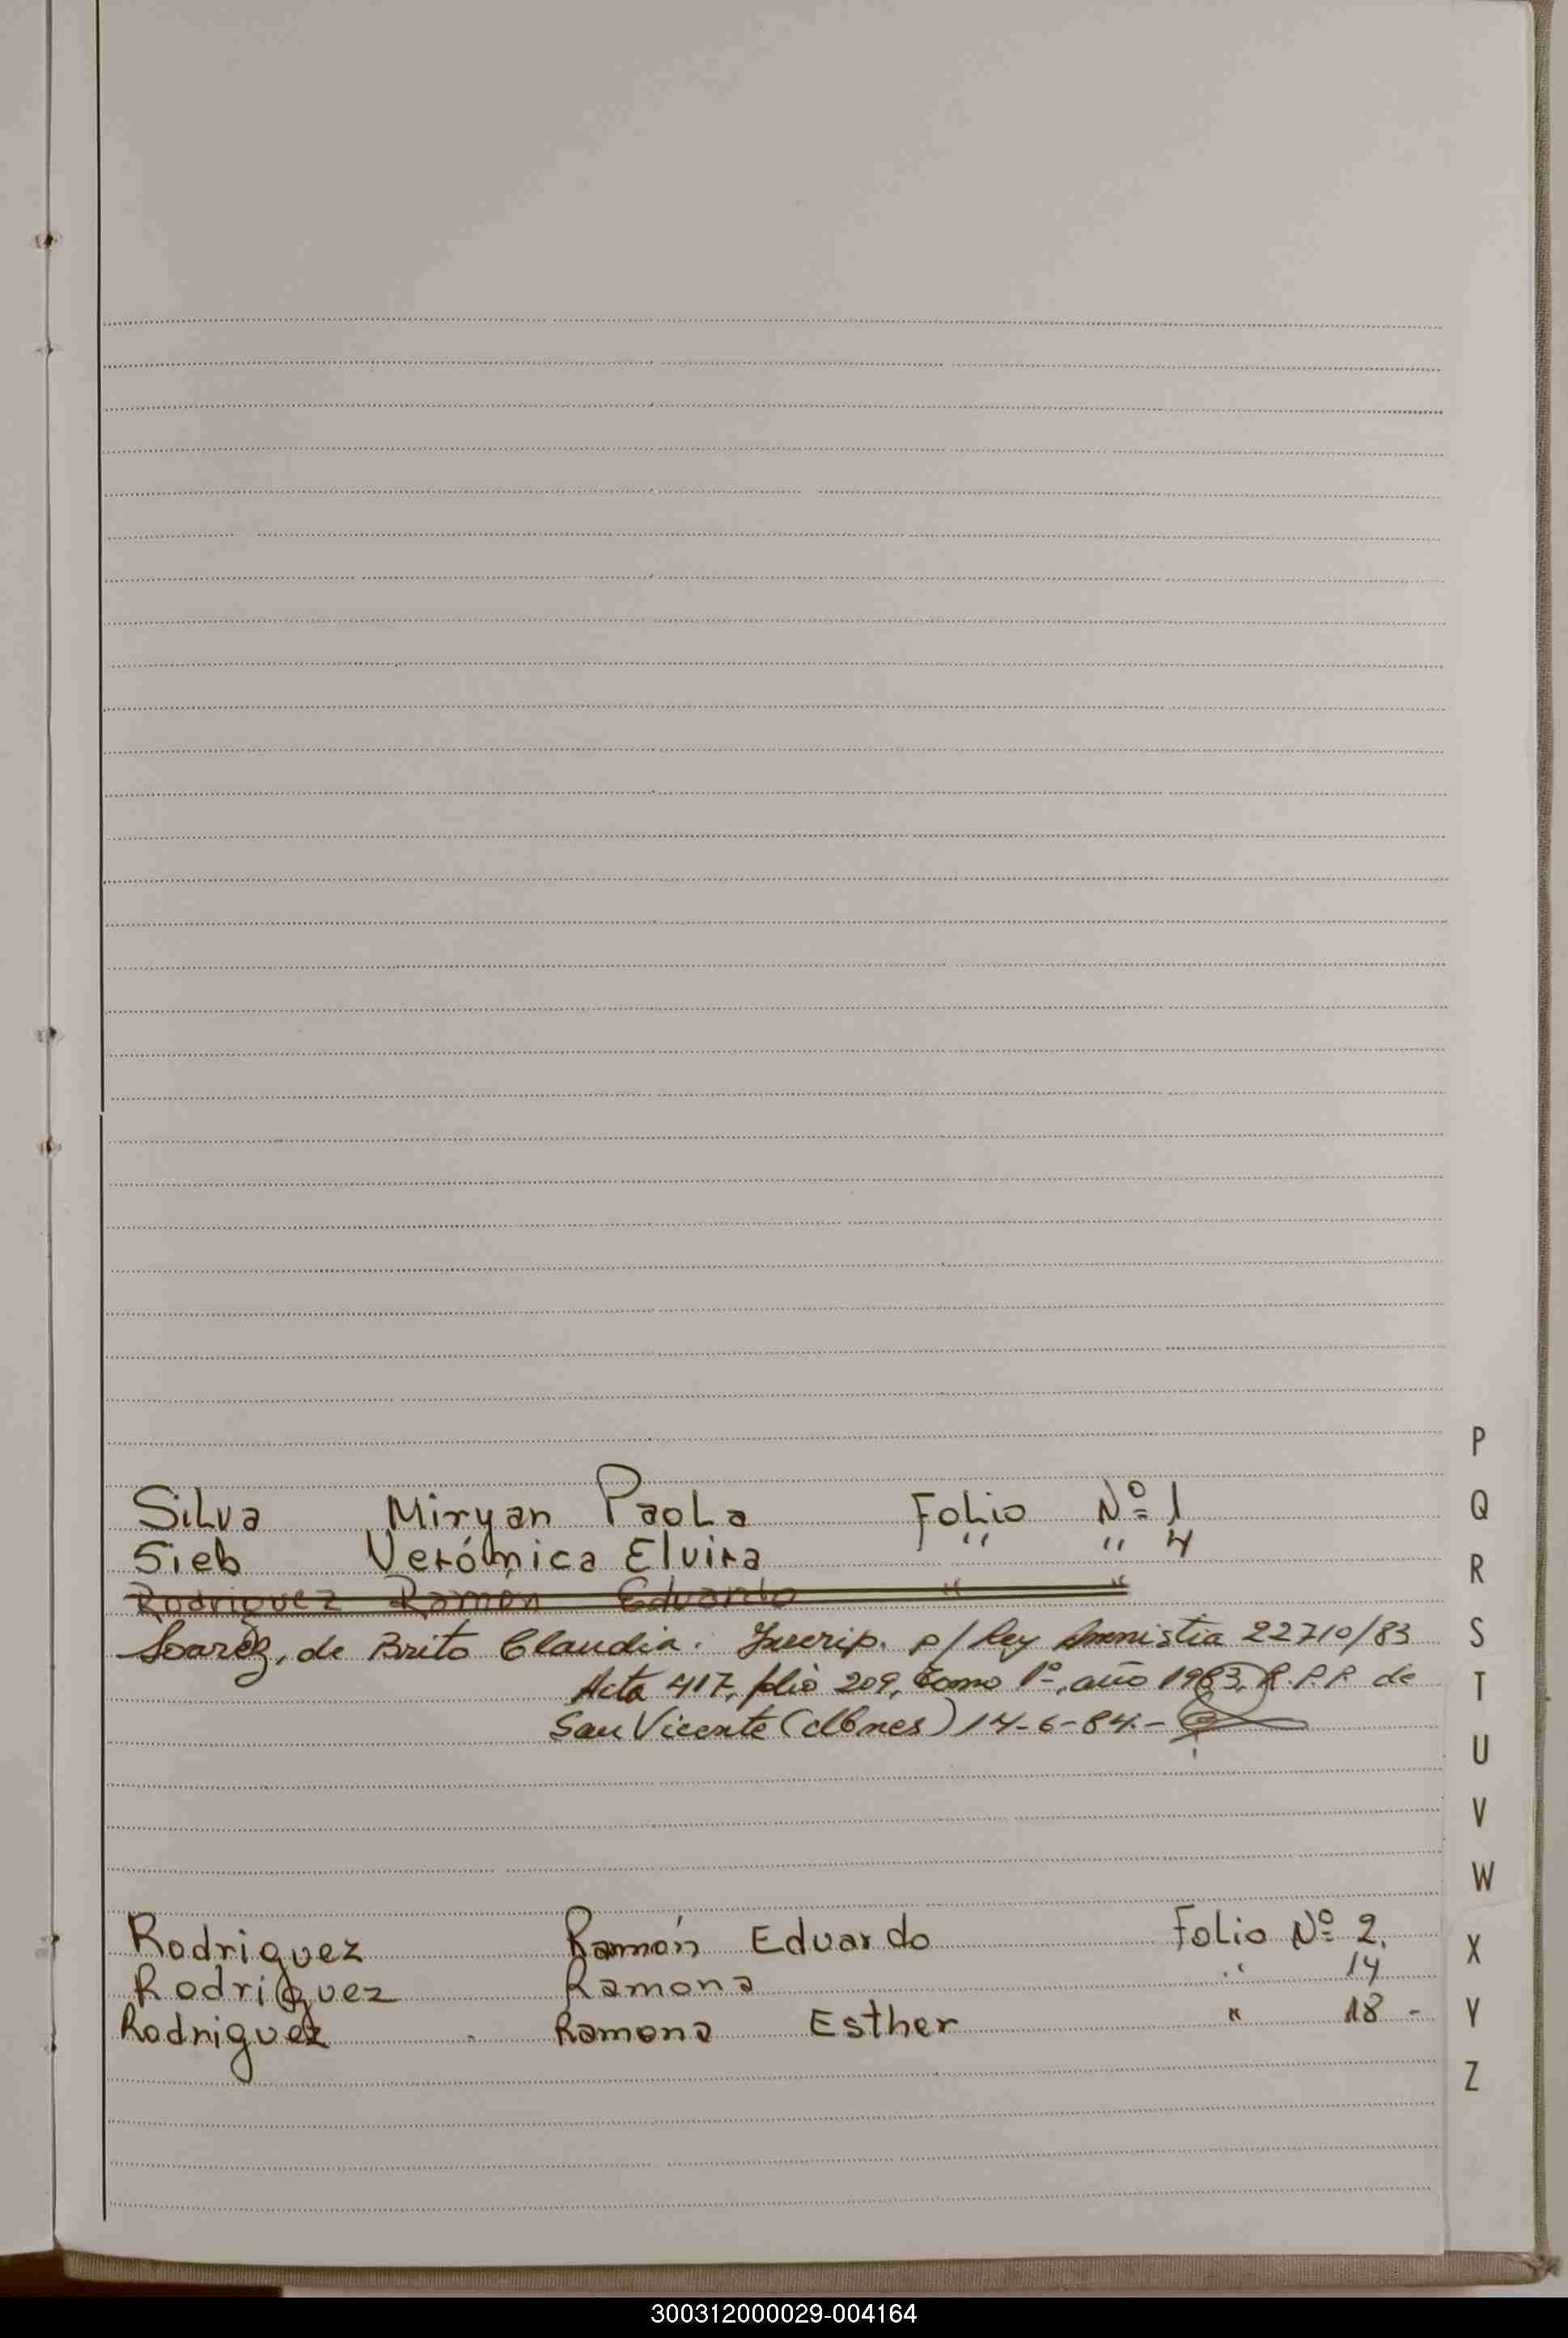 Silva Miryan Paola Folio Nº 1
Sieb Verónica Elvira " " 4
Rodriguez Ramon Eduardo " "
Soarez, de Brito Claudia. Inscrip. p/ Ley Amnistia 22710/83
Acta 417, folio 209, tomo 1º, año 1983, R.P.P. de
San Vicente ( ) 14-6-84.-
Rodriguez Ramón Eduardo Folio Nº 2.
Rodriguez Ramona " 14
Rodriguez Ramona Esther " 18 -
P
Q
R
S
T
U
V
W
X
Y
Z
300312000029-004164